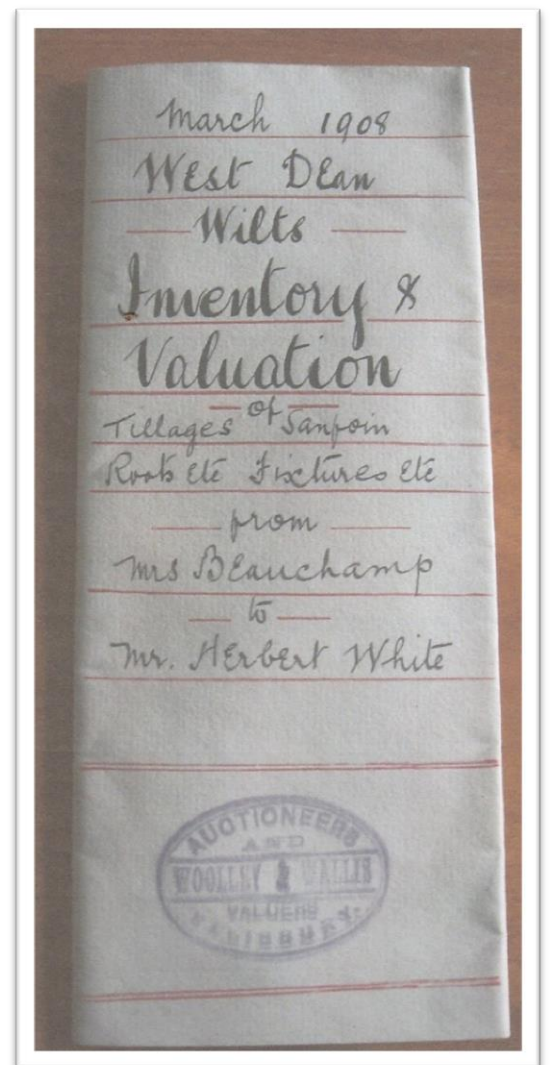 March 1908
West Dean
Wilts
Inventory &
Valuation
of
Tillages Sanfoin
Roots Etc Fixtures Etc
from
Mrs Beauchamp
to
Mr. Herbert White
AUCTIONEERS
AND
WOOLLEY & WALLIS
VALUERS
SALISBURY.